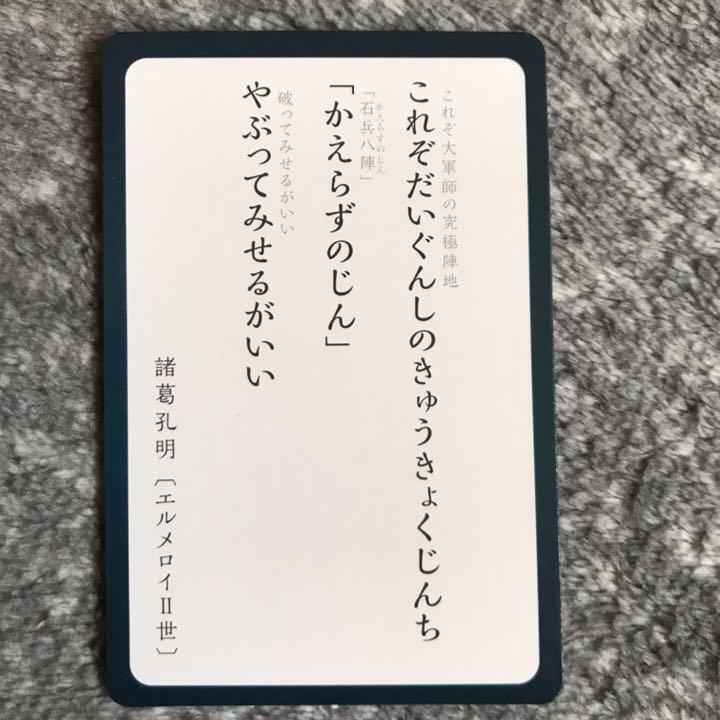 これぞ大軍師の究極陣地
これぞだいぐんしのきゅうきょくじんち
かえらずのじん
「石兵八陣」
「かえらずのじん」
破ってみせるがいい
やぶってみせるがいい
諸葛孔明〔エルメロイⅡ世〕